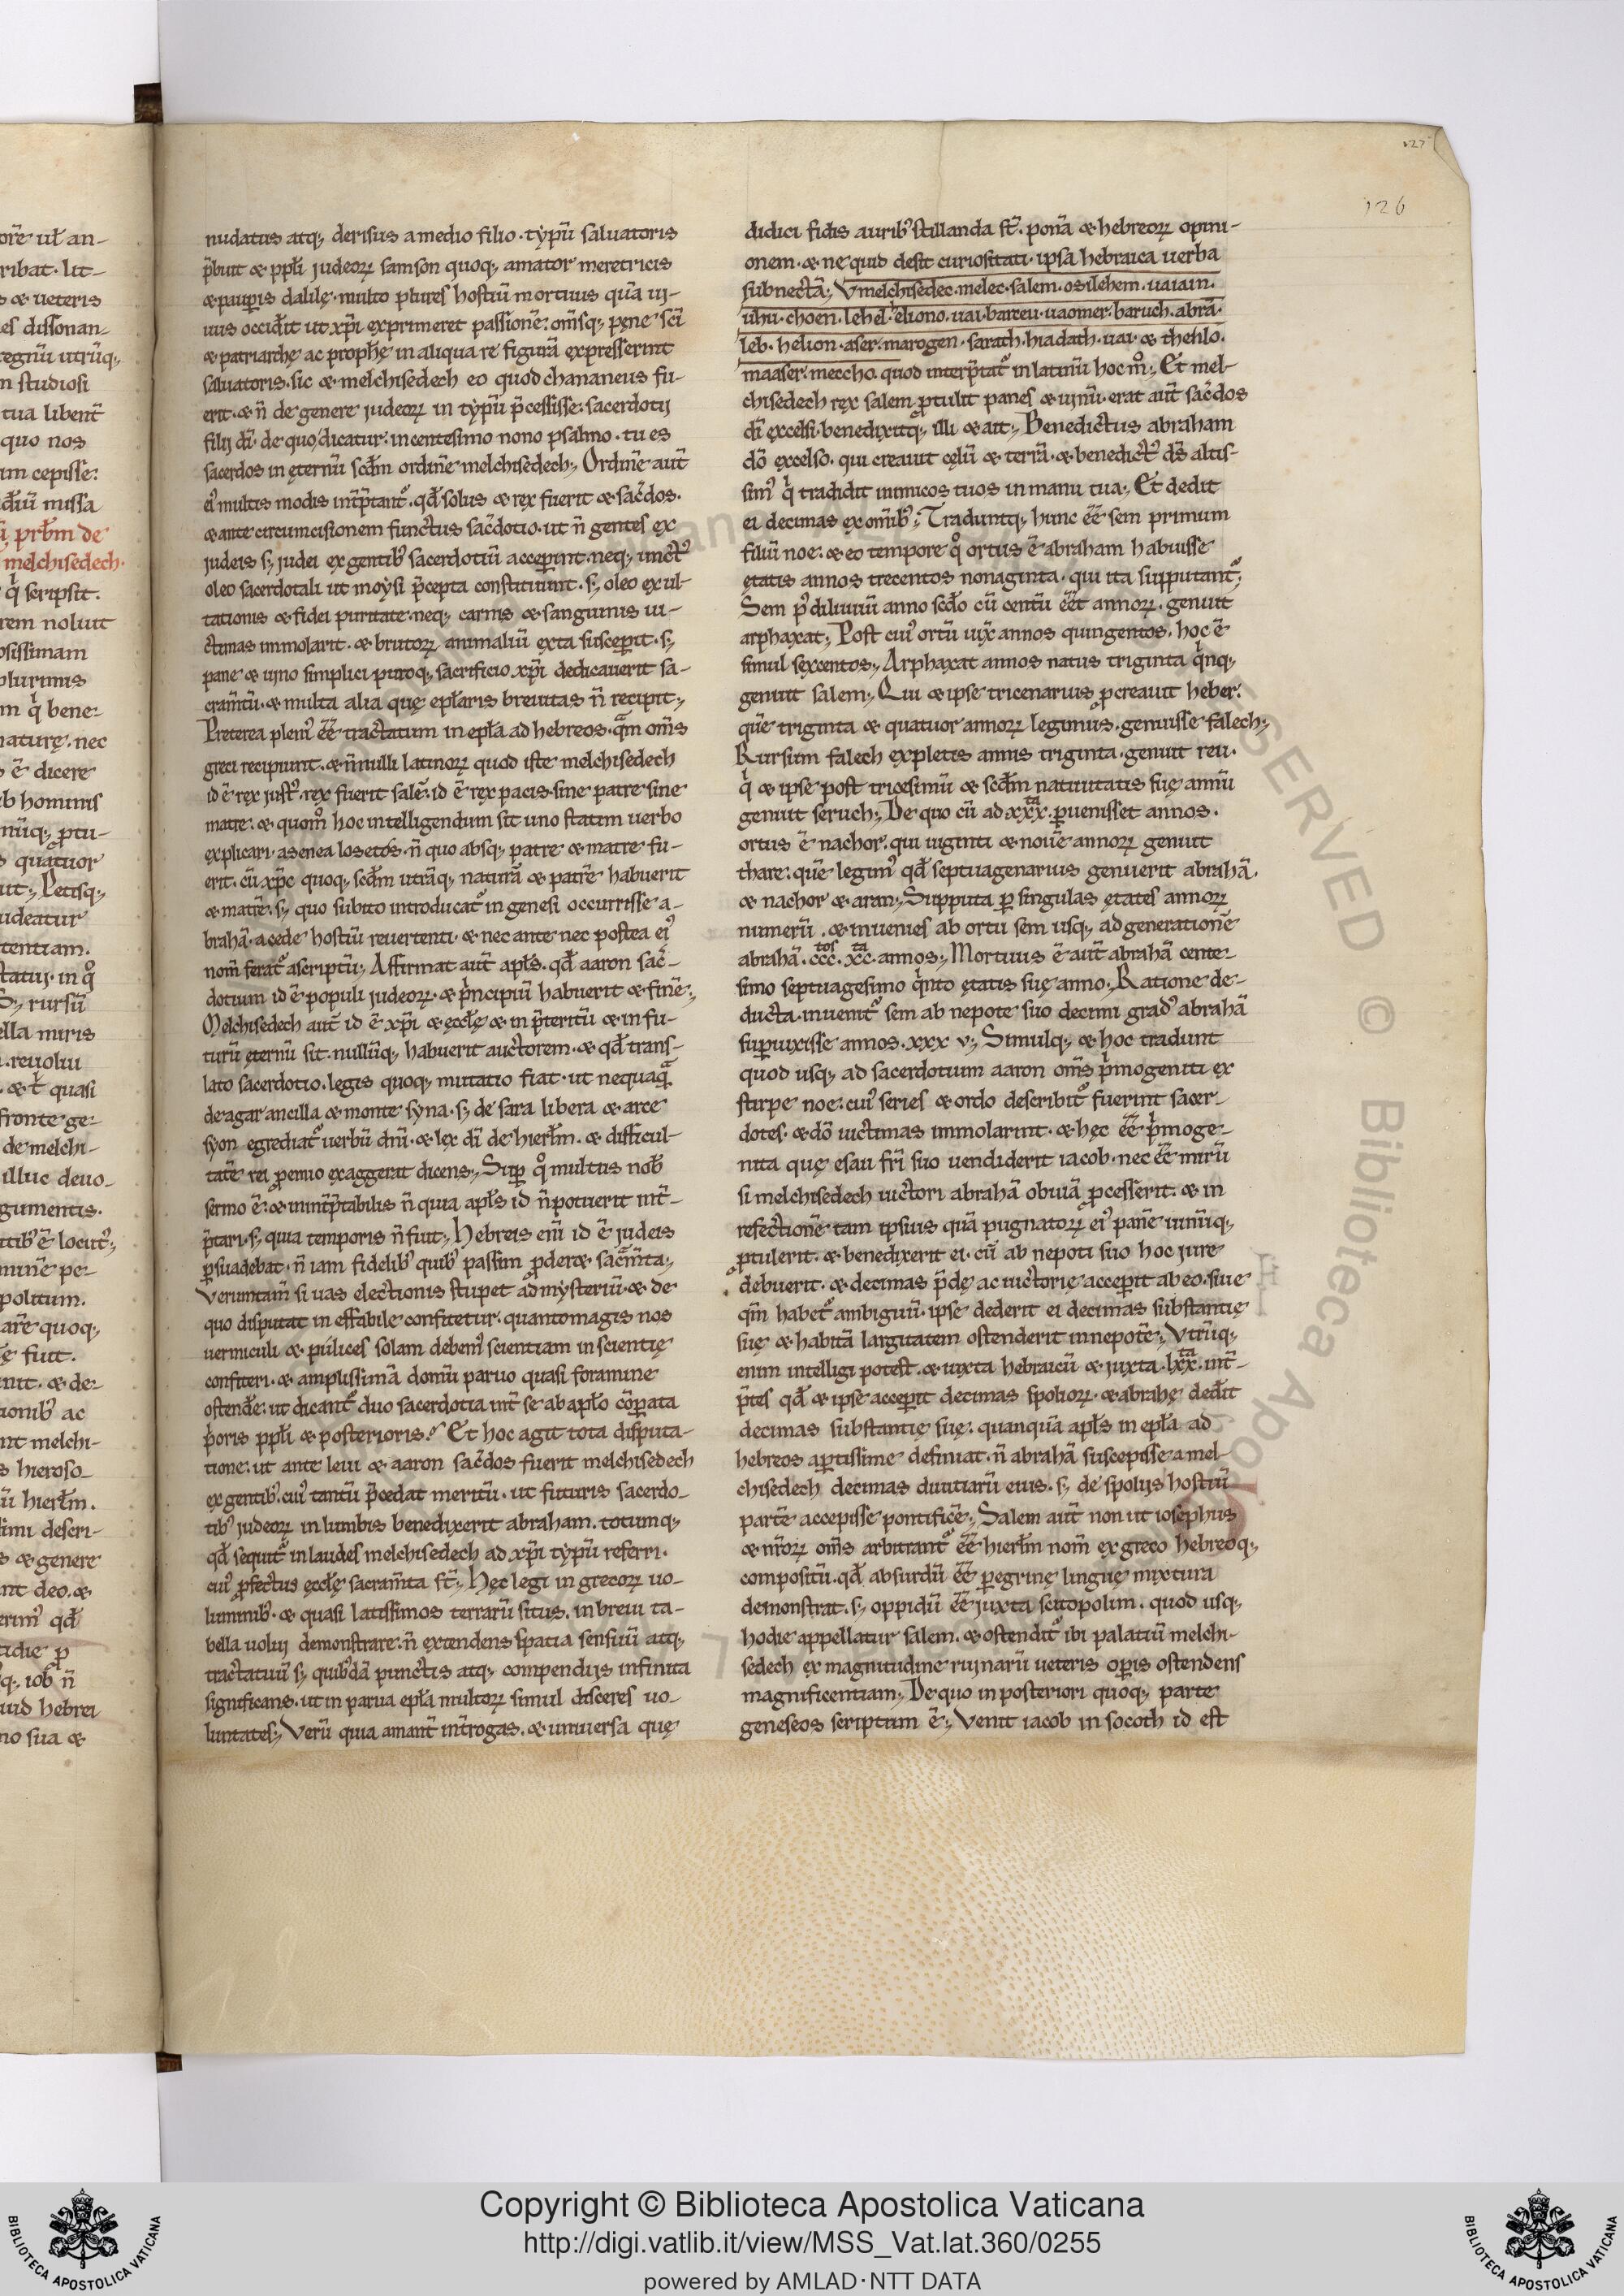 127
126
ore ul an-
ribat. lit-
s & ueteris
es dissonan-
regnũ utrũq;
n studiosi
tua libent̃
quo nos
um cepisse:
diũ missa
prb̃m de
melchisedech.
q̇ scripsit.
rem noluit
osissimam
plurimis
m q̇ bene-
naturę. nec
s ẽ dicere
ab hominis
nũq; ꝓtu-
s quatuor
ut; Petisq;
uideatur
tentiam.
statuj. in q̊
rursũ
ella miris
reuolui
quasi
fronte ge-
de melchi-
illuc deuo-
gumentis.
ttib᾽ ẽ locut᾽;
mine pe-
politum.
are quoq;
ę fuit.
nit. & de-
ionib᾽ ac
nt melchi-
s hieroso-
ũ hierl̃m.
simi descri-
s & genere
nt deo. &
erim᾽ qđ
tidie ꝓ
q; iob ñ
uid hebrei
no sua &
nudatus atq; derisus a medio filio. typũ saluatoris
p̃buit & ppl̃i judeoꝝ samson quoq; amator meretricis
& paupis dalilę. multo plures hostiũ mortuus quã ui-
uus occidit ut xp̃i exprimeret passionẽ: om̃sq; pęne sc̃i
& patriarchę ac prophę in aliqua re figurã expresserint
saluatoris. sic & melchisedech eo quod chananeus fu-
erit. & ñ de genere judeoꝝ in typũ p̃cessisse: sacerdotij
filij dĩ. de quo dicatur: in centesimo nono psalmo. tu es
sacerdos in ęternũ scđm ordinẽ melchisedech; Ordinẽ aut̃
ei᾽ multis modis int̃p̃tant᾽. qđ solus & rex fuerit & sac̃dos.
& ante circumcisionem functus sac̃dotio. ut ñ gentes ex
judeis s; judei ex gentib᾽ sacerdotiũ acceperint. neq; unct᾽
oleo sacerdotali ut moysi p̃cepta constituunt. s; oleo exul-
tationis & fidei puritate. neq; carnis & sanguinis ui-
ctimas immolarit. & brutoꝝ animaliũ exta susceperit. s;
pane & uino simplici puroq; sacrificio xp̃i dedicauerit sa-
cram̃tũ. & multa alia quę epl̃aris breuitas ñ recipit;
Preterea pleni᾽ ẽẽ tractatum in epl̃a ad hebreos. quam om̃s
greci recipiunt. & ñnulli latinoꝝ quod iste melchisedech
id ẽ rex just᾽. rex fuerit salẽ. id ẽ rex pacis. sine patre sine
matre: & quom̊ hoc intelligendum sit uno statim uerbo
explicari. asenea losetos. ñ quo absq; patre & matre fu-
erit. cũ xp̃c quoq; scđm utrãq; naturã & patrẽ habuerit
& matrẽ. s; quo subito introducat᾽ in genesi occurrisse a-
brahã. a cede hostiũ reuertenti. & nec ante nec postea ei᾽
nom̃ ferat᾽ ascriptũ; Affirmat aut̃ apl̃s. qđ aaron sac̃-
dotium id ẽ populi judeoꝝ. & p̃ncipiũ habuerit & finẽ;
Melchisedech aut̃ id ẽ xp̃i & eccl̃ę & in p̃teritũ & in fu-
turũ ęternũ sit. nullũq; habuerit auctorem. & qđ trans-
lato sacerdotio. legis quoq; mutatio fiat. ut nequaq̃
de agar ancilla & monte syna. s; de sara libera & arce
syon egrediat᾽ uerbũ dñi. & lex dĩ de hierl̃m. & difficul-
tatẽ rei ꝓemio exaggerat dicens; Sup q̊ multus nob̃
sermo ẽ: & inint̃p̃tabilis ñ quia apl̃s id ñ potuerit int̃-
p̃tari. s; quia temporis ñ fuit; Hebreis enĩ id ẽ judeis
p̱suadebat. ñ iam fidelib᾽ quib᾽ passim ꝓderet sacram̃ta;
Verumtam̃ si uas electionis stupet ad mysteriũ. & de
quo disputat in effabile confitetur. quantomagis nos
uermiculi & pulices solam debem᾽ scientiam inscientię
confiteri. & amplissimã domũ paruo quasi foramine
ostendẽ: ut dicant᾽ duo sacerdotia int̃ se ab apl̃o cõparata
p̃oris ppl̃i & posterioris? Et hoc agit tota disputa-
tione: ut ante leui & aaron sac̃dos fuerit melchisedech
ex gentib᾽. cui᾽ tantũ p̃cedat meritũ. ut futuris sacerdo-
tib᾽ judeoꝝ in lumbis benedixerit abraham. totumq;
qđ sequit᾽ in laudes melchisedech ad xp̃i typũ referri.
cui᾽ ꝓfectus eccl̃ę sacram̃ta st̃; Hęc legi in grecoꝝ uo-
luminib᾽. & quasi latissimos terrarũ situs. in breui ta-
bella uolui demonstrare. ñ extendens spatia sensuũ atq;
tractatuũ s; quib᾽dã punctis atq; compendijs infinita
significans. ut in parua epl̃a multoꝝ simul disceres uo-
luntates; Verũ quia amant̃ int̃rogas. & uniuersa quę
didici fidis aurib᾽ stillanda st̃. ponã & hebreoꝝ opini-
onem. & ne quid desit curiositati. ipsa hebraica uerba
subnectã; Vmelchisedec. melec. salem. osilehem. uaiain.
uhu. choen. lehel. eliono. uai. barceu. uaomer. baruch. abrã.
leb. helion. aser. marogen. sarath. hiadath. uai. & thehlo.
maaser. meccho. quod interp̃tat᾽ in latinũ hoc m̊; Et mel-
chisedech rex salem ꝓtulit panes & uinũ. erat aut̃ sac̃dos
dĩ excelsi. benedixitq; illi & ait; Benedictus abraham
dõ excelso. qui creauit cęlũ & terrã. & benedict᾽ ds̃ altis-
sim᾽ q̇ tradidit inimicos tuos in manu tua; Et dedit
ei decimas ex om̃ib᾽; Traduntq; hunc ẽẽ sem primum
filiũ noe: & eo tempore q̊ ortus ẽ abraham habuisse
ętatis annos trecentos nonaginta. qui ita supputant᾽;
Sem p᾽ diluuiũ anno scđo cũ centũ ẽẽt annoꝝ. genuit
arphaxat; Post cui᾽ ortũ uix̃ annos quingentos. hoc ẽ
simul sexcentos; Arphaxat annos natus triginta q̇nq;
genuit salem; Qui & ipse tricenarius ꝓcreauit heber.
quẽ triginta & quatuor annoꝝ legimus. genuisse falech;
Rursum falech expletis annis triginta. genuit reu.
q̇ & ipse post tricesimũ & scđm natiuitatis suę annũ
genuit seruch; De quo cũ ad xxx.ta p̱uenisset annos.
ortus ẽ nachor. qui uiginti & nouẽ annoꝝ genuit
thare: quẽ legim᾽ qđ septuagenarius genuerit abrahã.
& nachor & aran; Supputa p̱ singulas ętates annoꝝ
numerũ. & inuenies ab ortu sem usq; ad generationẽ
abrahã. ccc.tos xc.ta annos; Mortuus ẽ aut̃ abrahã cente-
simo septuagesimo q̇nto ętatis suę anno; Ratione de-
ducta. inuenit᾽ sem ab nepote suo decimi grad᾽ abrahã
sup̱uixisse annos. xxx v; Simulq; & hoc tradunt
quod usq; ad sacerdotium aaron om̃s p̃mogeniti ex
stirpe noe: cui᾽ series & ordo describit᾽ fuerint sacer-
dotes. & dõ uictimas immolarint. & hęc ẽẽ p̃moge-
nita quę esau fr̃i suo uendiderit iacob. nec ẽẽ mirũ
si melchisedech uictori abrahã obuiã ꝓcesserit. & in
refectionẽ tam ipsius quã pugnatoꝝ ei᾽ panẽ uinũq;
ꝓtulerit. & benedixerit ei. cũ ab nepoti suo hoc jure
debuerit. & decimas p̃dę ac uictorię acceperit ab eo. siue
qm̃ habet᾽ ambiguũ. ipse dederit ei decimas substantię
suę & habitã largitatem ostenderit in nepotẽ; Vtrũq;
enim intelligi potest. & iuxta hebraicũ & juxta .lxx.ta int̃-
p̃tes qđ & ipse acceperit decimas spolioꝝ. & abrahę dedit
decimas substantię suę. quanquã apl̃s in epl̃a ad
hebreos ap̱tissime definiat. ñ abrahã suscepisse a mel-
chisedech decimas diuitiarũ eius. s; de spolijs hostiũ
partẽ accepisse pontificẽ; Salem aut̃ non ut iosephus
& nr̃oꝝ om̃s arbitrant᾽ ẽẽ hierl̃m nom̃ ex greco hebreoq;
compositũ. qđ absurdũ ẽẽ p̱egrinę linguę mixtura
demonstrat. s; oppidũ ẽẽ juxta scitopolim. quod usq;
hodie appellatur salem. & ostendit᾽ ibi palatiũ melchi-
sedech ex magnitudine ruinarũ ueteris op̱is ostendens
magnificentiam; De quo in posteriori quoq; parte
geneseos scriptum ẽ; Venit iacob in socoth id est
Copyright © Biblioteca Apostolica Vaticana
http://digi.vatlib.it/view/MSS_Vat.lat.360/0255
powered by AMLAD·NTT DATA
BIBLIOTECA APOSTOLICA VATICANA
BIBLIOTECA APOSTOLICA VATICANA